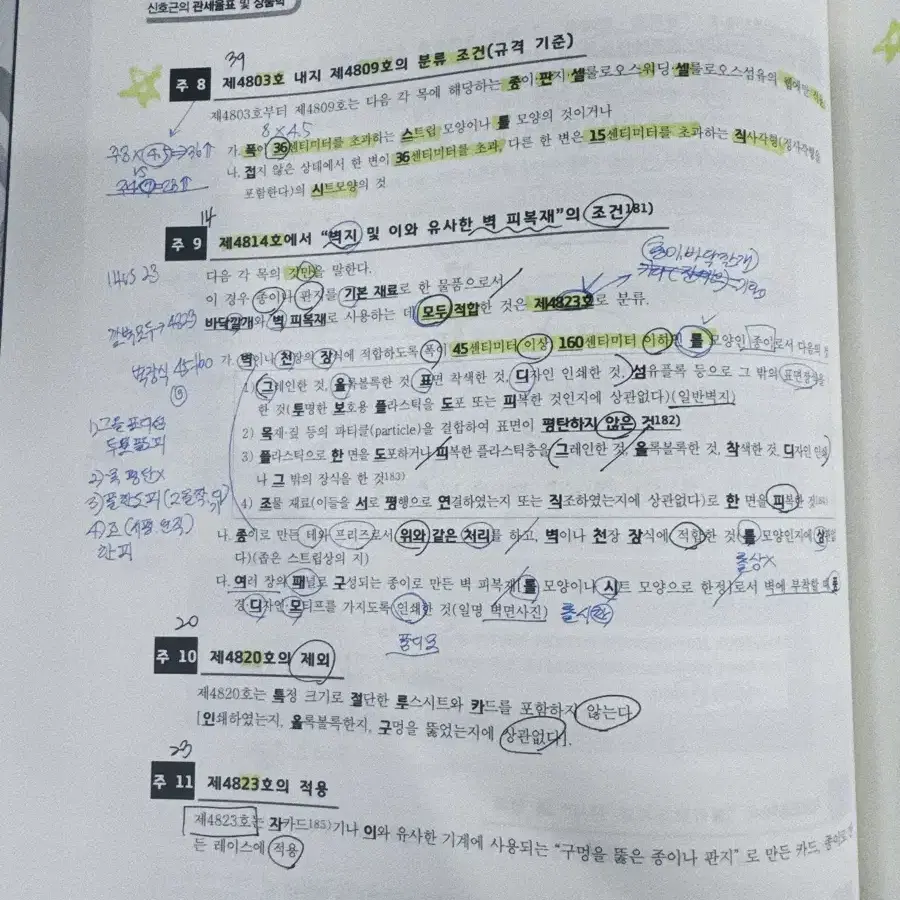 신호근의 관세율표 및 상품학
39
주 8 제4803호 내지 제4809호의 분류 조건(규격 기준)
제4803호부터 제4809호는 다음 각 목에 해당하는 종이·판지·셀룰로오스워딩·셀룰로오스섬유의
8×4.5
가. 폭이 36센티미터를 초과하는 스트립 모양이나 롤 모양의 것이거나
나. 접지 않은 상태에서 한 변이 36센티미터를 초과, 다른 한 변은 15센티미터를 초과하는 직사각형(정사각형을
포함한다)의 시트모양의 것
주8×4.5⇒36↑
14
주 9 제4814호에서 “벽지 및 이와 유사한 벽 피복재”의 조건181)
다음 각 목의 것만을 말한다.
이 경우 종이나 판지를 기본 재료로 한 물품으로서
바닥깔개와 벽 피복재로 사용하는 데 모두 적합한 것은 제4823호로 분류.
갈벽모두→4823
벽장식 45-160
가. 벽이나 천장의 장식에 적합하도록 폭이 45센티미터 이상 160센티미터 이하인 롤 모양인 종이로서 다음의 것
1) 그레인한 것, 올록볼록한 것, 표면 착색한 것, 디자인 인쇄한 것, 섬유플록 등으로 그 밖의 표면장식을
한 것(투명한 보호용 플라스틱을 도포 또는 피복한 것인지에 상관없다)(일반벽지)
2) 목재·짚 등의 파티클(particle)을 결합하여 표면이 평탄하지 않은 것182)
3) 플라스틱으로 한 면을 도포하거나 피복한 플라스틱층을 그레인한 것, 올록볼록한 것, 착색한 것, 디자인 인쇄
나 그 밖의 장식을 한 것183)
4) 조물 재료(이들을 서로 평행으로 연결하였는지 또는 직조하였는지에 상관없다)로 한 면을 피복한 것
나. 종이로 만든 테와 프리즈로서 위와 같은 처리를 하고, 벽이나 천장 장식에 적합한 것(롤 모양인지에 상관없
다)(좁은 스트립상의 지)
롤상×
다. 여러 장의 패널로 구성되는 종이로 만든 벽 피복재[롤 모양이나 시트 모양으로 한정]로서 벽에 부착할 때 풍
경·디자인·모티프를 가지도록 인쇄한 것(일명 벽면사진)
풍디모
20
주 10 제4820호의 제외
제4820호는 특정 크기로 절단한 루스시트와 카드를 포함하지 않는다
[인쇄하였는지, 올록볼록한지, 구멍을 뚫었는지에 상관없다].
23
주 11 제4823호의 적용
제4823호는 자카드185)기나 이와 유사한 기계에 사용되는 “구멍을 뚫은 종이나 판지” 로 만든 카드, 종이로 만
든 레이스에 적용